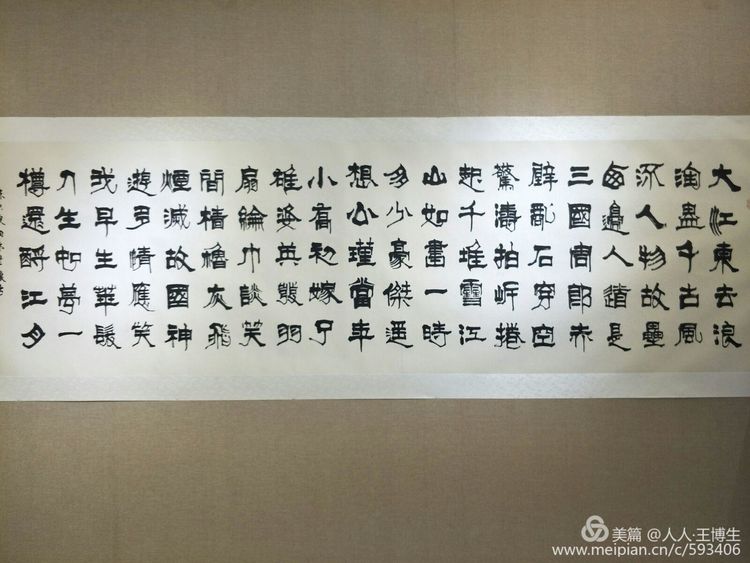 大江東去浪
淘盡千古風
流人物故壘
西邊人道是
三國周郎赤
壁亂石穿空
驚濤拍岸捲
起千堆雪江
山如畫一時
多少豪傑遙
想公瑾當年
小喬初嫁了
雄姿英發羽
扇綸巾談笑
間檣櫓灰飛
煙滅故國神
遊多情應笑
我早生華髮
人生如夢一
樽還酹江月
美篇 @人人·王博生
www.meipian.cn/c/593406